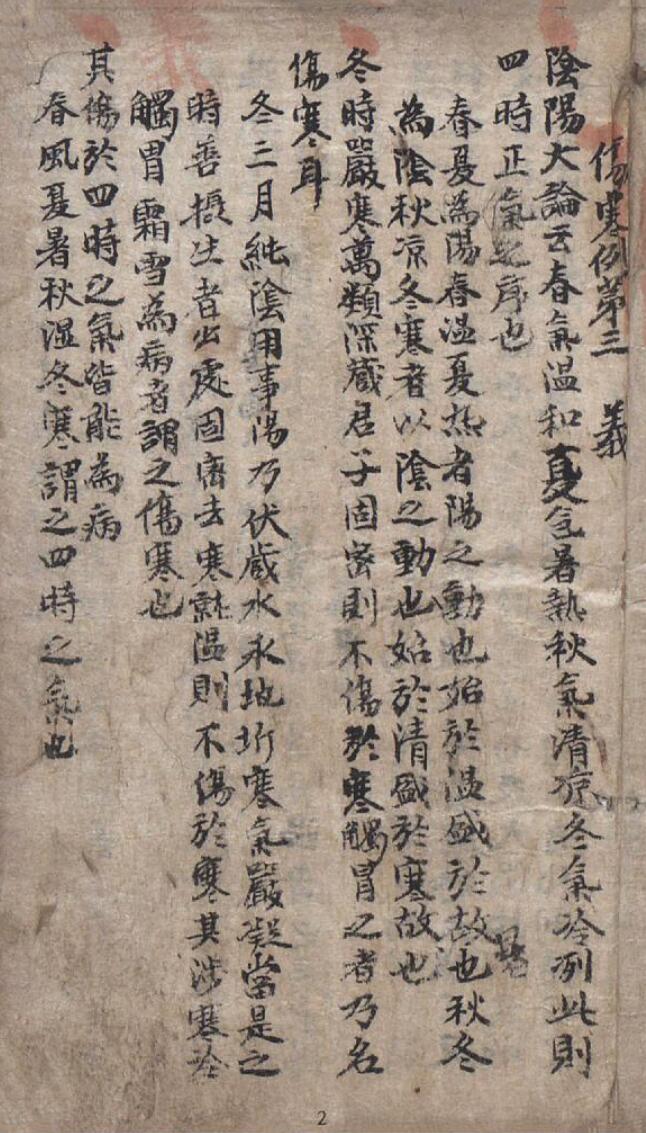 傷寒例第三 義
陰陽大論云春氣溫和夏氣暑熱秋氣清凉冬氣冷冽此則
四時正氣之序也
春夏爲陽春溫夏熱者陽之動也始於溫盛於暑故也秋冬
為陰秋凉冬寒者以陰之動也始於清盛於寒故也
冬時嚴寒萬類深藏君子固密則不傷於寒觸冒之者乃名
傷寒耳
冬三月純陰用事陽乃伏藏水氷地坼寒氣嚴凝當是之
時善攝生者出處固密去寒就溫則不傷於寒其涉寒冷
觸冒霜雪為病者謂之傷寒也
其傷於四時之氣皆能為病
春風夏暑秋濕冬寒謂之四時之氣也
2